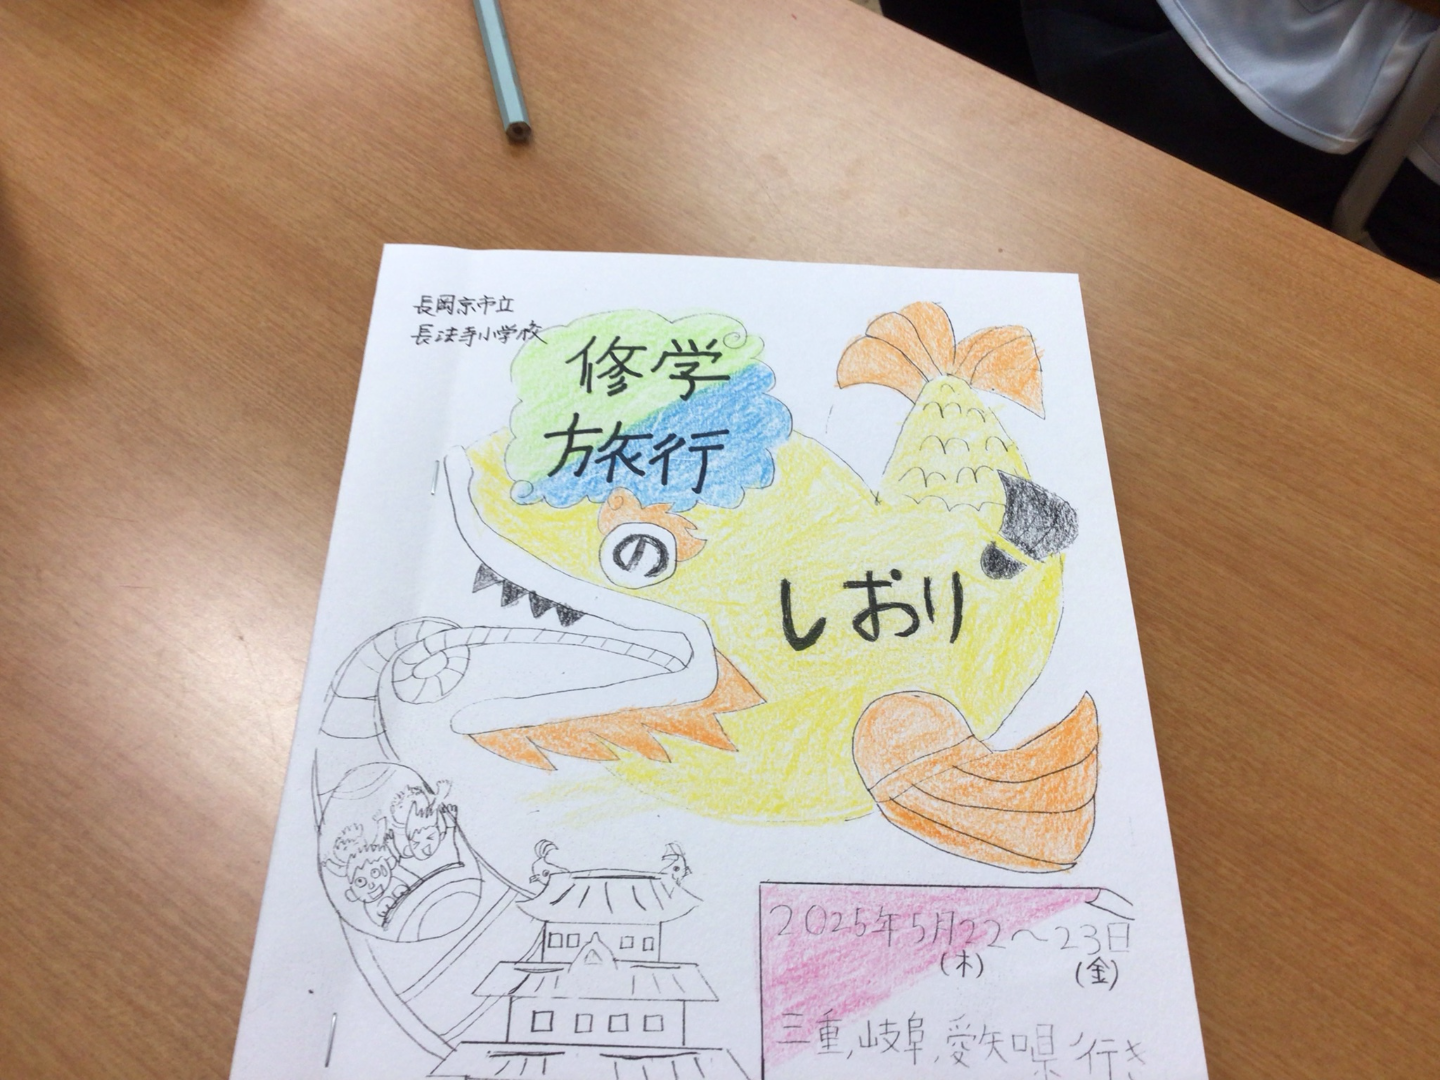 長岡京市立
長法寺小学校
修学
旅行
の
しおり
2025年5月22〜23日
(木) (金)
三重,岐阜,愛知県行き